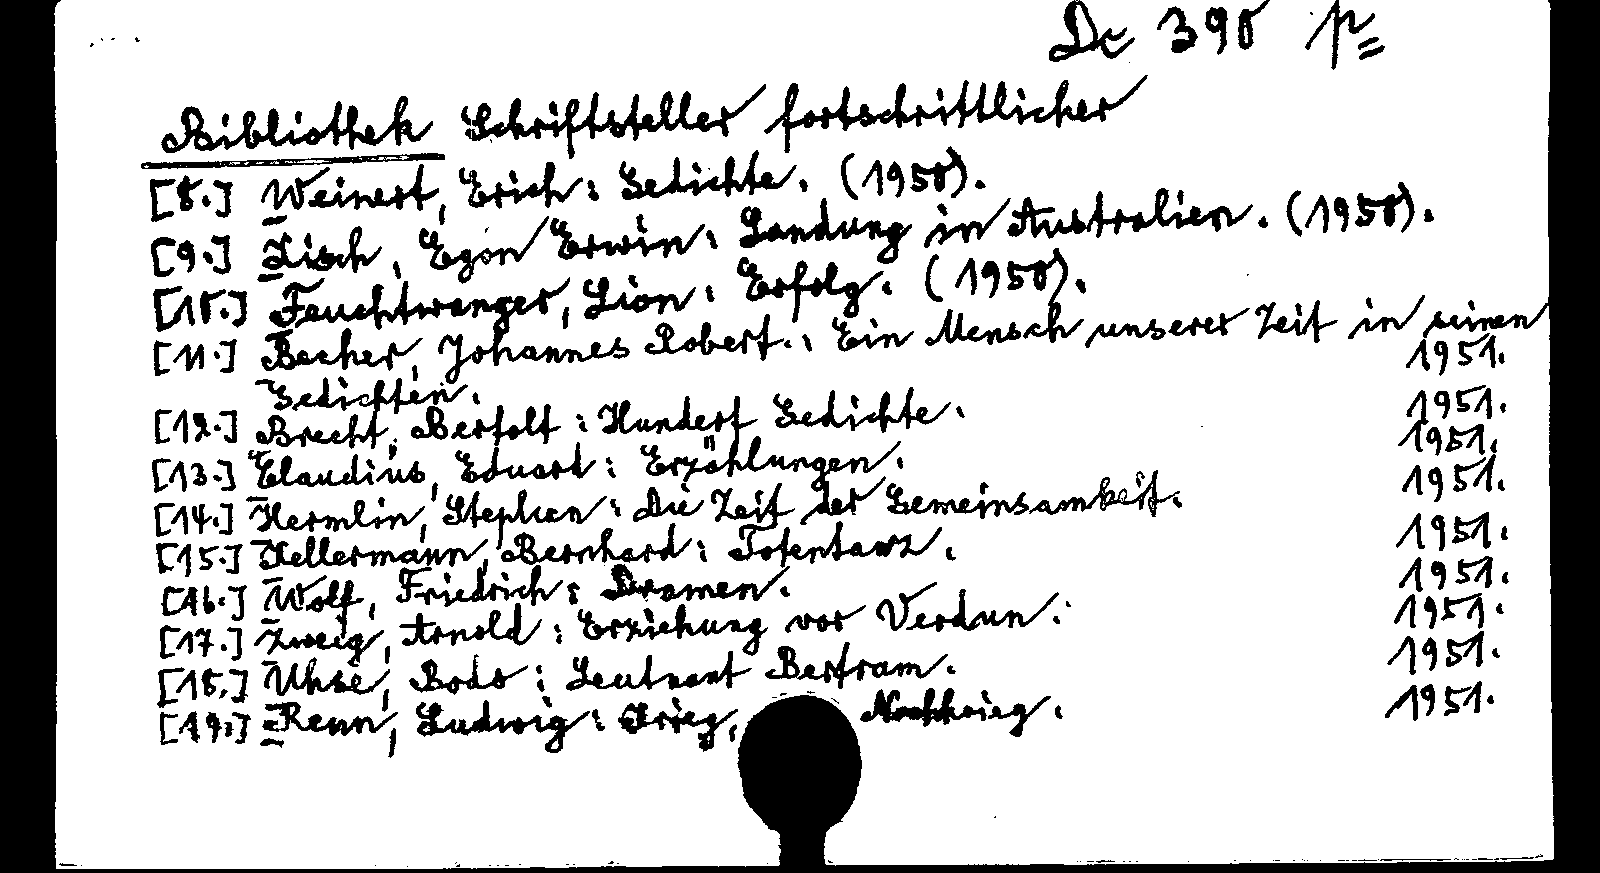 De 390 p
Bibliothek Schriftsteller fortschrittlicher
[8.] Weinert, Erich: Gedichte. (1950).
[9.] Kisch, Egon Erwin: Landung in Australien. (1950).
[10.] Feuchtwanger, Lion: Erfolg. (1950).
[11.] Becher, Johannes Robert.: Ein Mensch unserer Zeit in seinen
Gedichten. 1951.
[12.] Brecht, Bertolt: Hundert Gedichte. 1951.
[13.] Claudius, Eduard: Erzählungen. 1951.
[14.] Hermlin, Stephan: Die Zeit der Gemeinsamkeit. 1951.
[15.] Kellermann, Bernhard: Totentanz. 1951.
[16.] Wolf, Friedrich: Dramen. 1951.
[17.] Zweig, Arnold: Erziehung vor Verdun. 1951.
[18.] Uhse, Bodo: Leutnant Bertram. 1951.
[19.] Renn, Ludwig: Krieg, Nachkrieg. 1951.